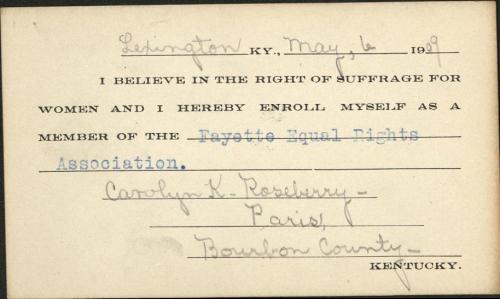 Lexington KY., May, 6 1909
I BELIEVE IN THE RIGHT OF SUFFRAGE FOR
WOMEN AND I HEREBY ENROLL MYSELF AS A
MEMBER OF THE Fayette Equal Rights
Association.
Carolyn K- Roseberry-
Paris,
Bourbon County-
KENTUCKY.